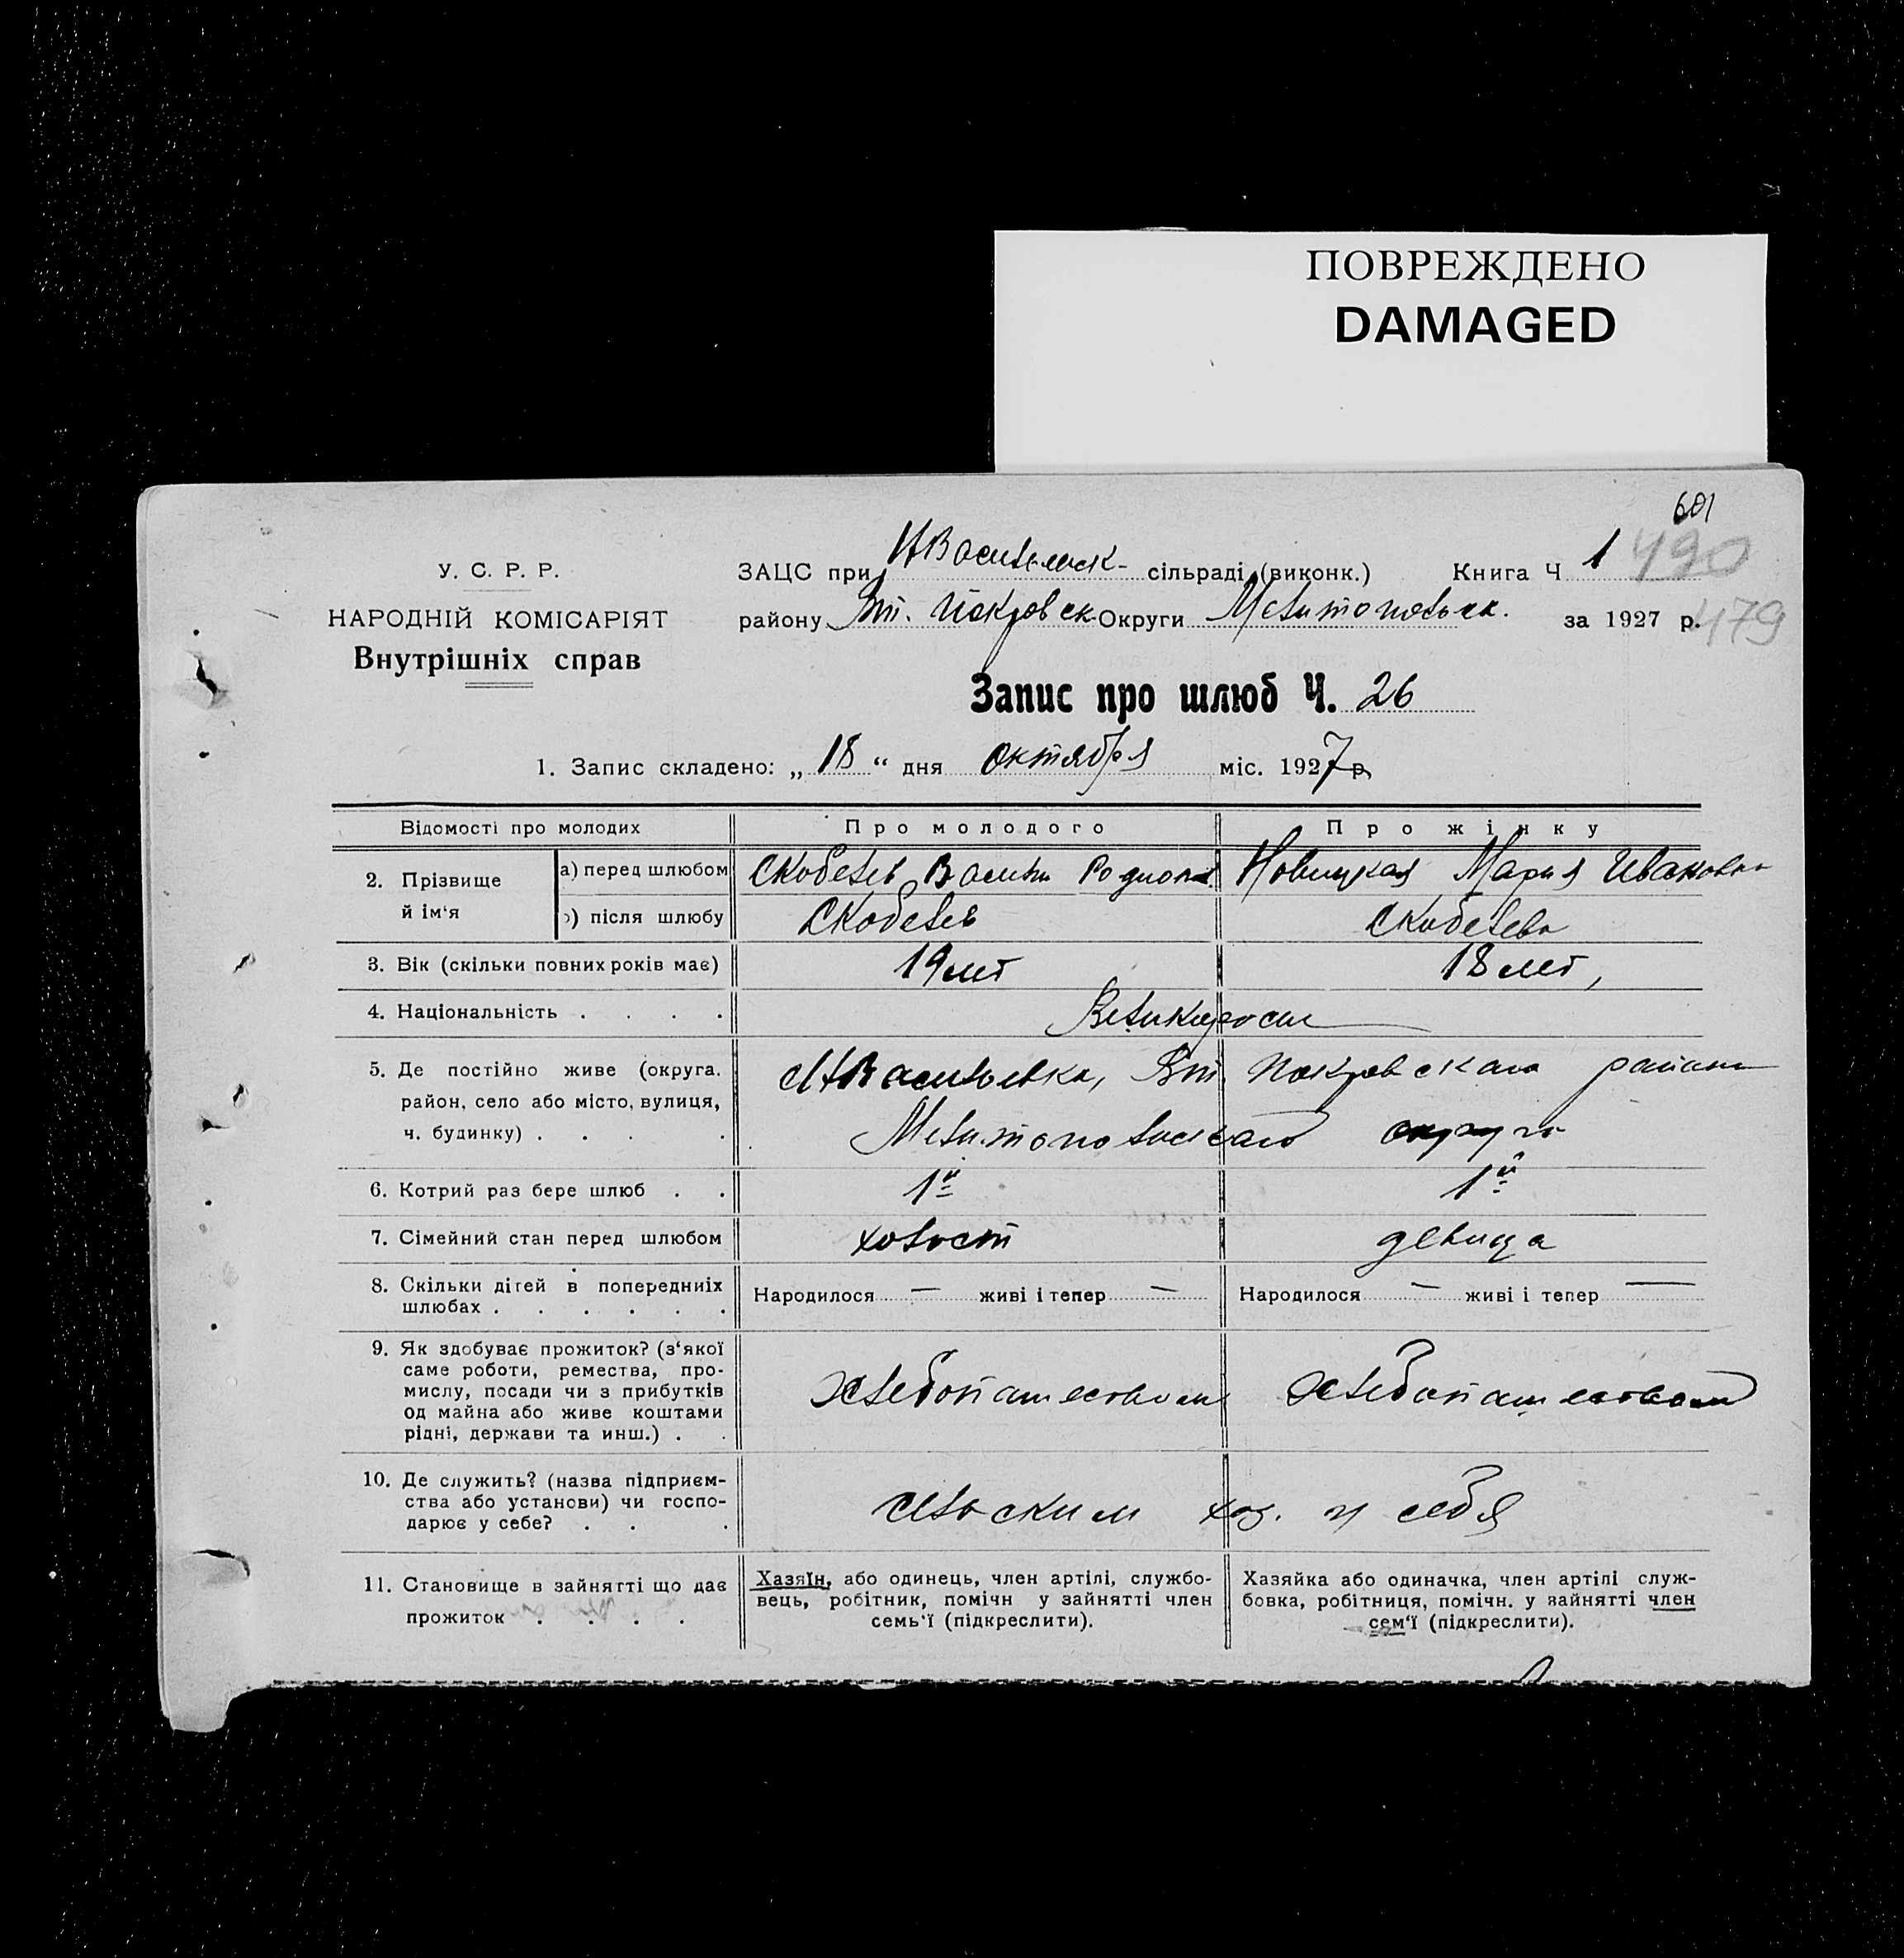 ПОВРЕЖДЕНО
DAMAGED
601
У. С. Р. Р.
НАРОДНІЙ КОМІСАРІЯТ
Внутрішніх справ
ЗАЦС при НВасильевск- сільраді (виконк.) Книга Ч 1 490
району Вт. Покровск Округи Мелитопольск. за 1927 р. 479
Запис про шлюб Ч. 26
1. Запис складено: „ 18 “ дня октября міс. 1927 р.
Відомості про молодих Про молодого Про жінку
2. Прізвище й ім‘я а) перед шлюбом Скобелев Василий Родионов. Новицкая Мария Ивановна
б) після шлюбу Скобелев Скобелева
3. Вік (скільки повних років має) 19 лет 18 лет,
4. Національність . . . . Великоросы
5. Де постійно живе (округа. НВасильевка, Вт. Покровского района
район, село або місто, вулиця, Мелитопольского округа
ч. будинку) . . . .
6. Котрий раз бере шлюб . . 1й 1й
7. Сімейний стан перед шлюбом холост девица
8. Скільки дітей в попередниіх Народилося — живі і тепер — Народилося — живі і тепер —
шлюбах . . . . . .
9. Як здобуває прожиток? (з‘якої
саме роботи, ремества, про-
мислу, посади чи з прибутків хлебопашеством хлебопашеством
од майна або живе коштами
рідні, держави та инш.) . .
10. Де служить? (назва підприєм-
ства або установи) чи госпо- сельским хоз. у себя
дарює у себе? . . .
11. Становище в зайнятті що дає Хазяїн, або одинець, член артілі, службо- Хазяйка або одиначка, член артілі служ-
прожиток . . . . вець, робітник, помічн у зайнятті член бовка, робітниця, помічн. у зайнятті член
семь‘ї (підкреслити). сем‘ї (підкреслити).